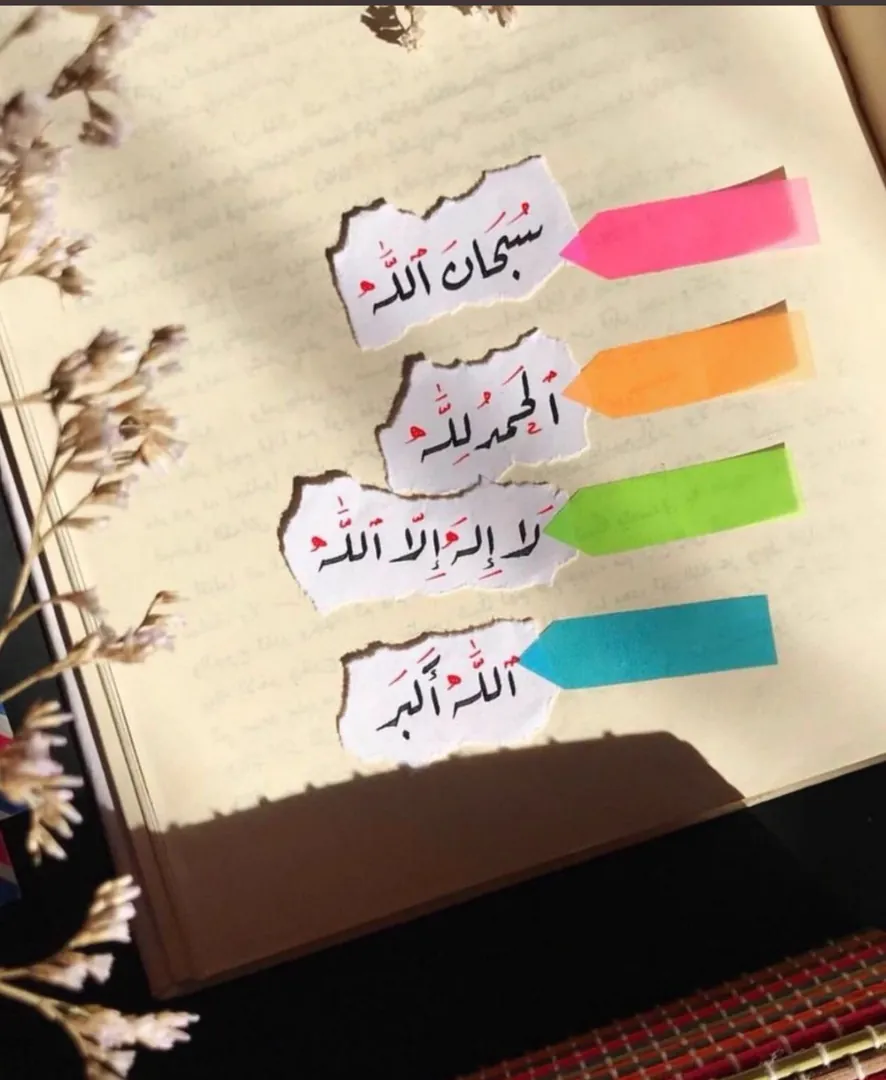 سُبْحَانَ ٱللَّٰه
ٱلْحَمْدُ لِلَّٰه
لَا إِلٰهَ إِلَّا ٱللَّٰه
ٱللَّٰهُ أَكْبَر